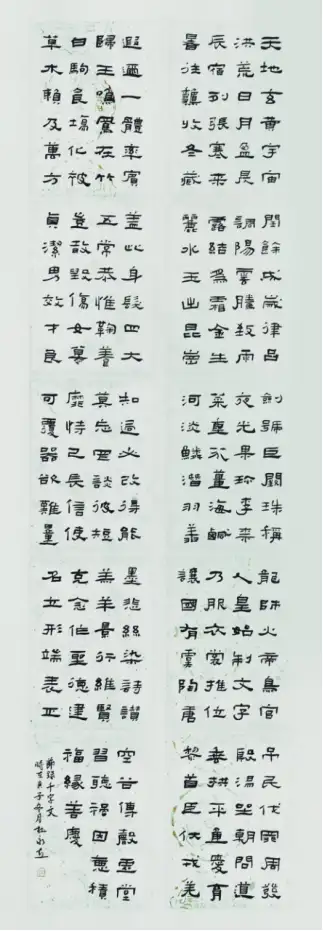 天地玄黄宇宙
洪荒日月盈昃
辰宿列張寒来
暑往秋收冬藏
閏餘成歲律吕
調陽雲騰致雨
露結為霜金生
麗水玉出昆崗
劍號巨闕珠稱
夜光果珍李柰
菜重芥薑海鹹
河淡鱗潛羽翔
龍師火帝鳥官
人皇始制文字
乃服衣裳推位
讓國有虞陶唐
吊民伐罪周發
殷湯坐朝問道
垂拱平章愛育
黎首臣伏戎羌
遐邇一體率賓
歸王鳴鳳在竹
白駒食場化被
草木賴及萬方
蓋此身髮四大
五常恭惟鞠養
豈敢毀傷女慕
貞潔男效才良
知過必改得能
莫忘罔談彼短
靡恃己長信使
可覆器欲難量
墨悲絲染詩讚
羔羊景行維賢
克念作聖德建
名立形端表正
空谷傳聲虛堂
習聽禍因惡積
福緣善慶
節録千字文
時在庚子冬月